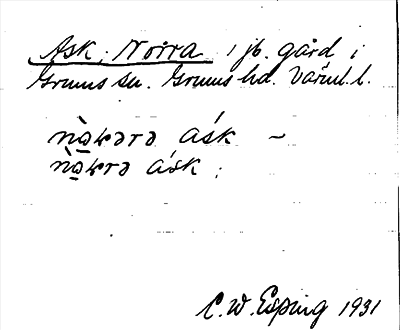 Ask, Norra, jb. gård i
Grums sn. Grums hd. Värml. l.
nò̱ꝶərə ásk ~
nò̱ꝶrə ásk.
C. W. Esping 1931